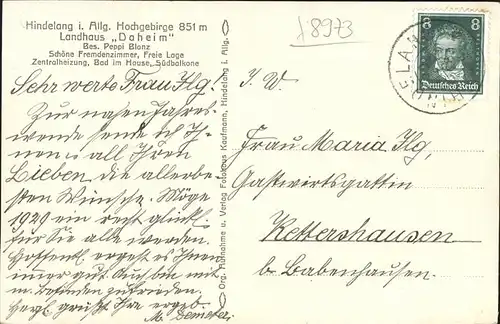 Hindelang i. Allg. Hochgebirge 851 m
Landhaus „Daheim"
Bes. Peppi Blanz
Schöne Fremdenzimmer, Freie Lage
Zentralheizung, Bad im Hause, Südbalkone
Sehr werte Frau Ilg!
Zur nahen Jahres-
wende sende ich Ih-
nen u. all Ihren
Lieben die allerbe-
sten Wünsche. Möge
1929 ein recht glückl.
für Sie alle werden.
Hoffentl. ergeht es Ihnen
immer gut. Auch bin mit
m. Befinden zufrieden.
Herzl. grüßt Ihre ergeb.
M. Demeter
Org. Aufnahme u. Verlag Fotohaus Kaufmann, Hindelang i. Allg.
18973
8 8
Deutsches Reich
I. W.
Frau Maria Ilg,
Gastwirtsgattin
Kettershausen
b. Babenhausen